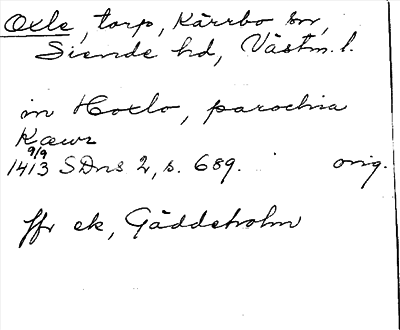 Oxle, torp, Kärrbo sn,
Siende hd, Västm. l.
in Hoxlo, parochia
Kæwr
9/9
1413 SDns 2, s. 689. orig.
ffr ek, Gäddeholm